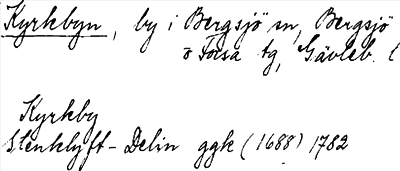 Kyrkbyn, by i Bergsjö sn, Bergsjö
o Forsa tg, Gävleb. l
Kyrkby
Stenklyft-Delin ggk (1688) 1782